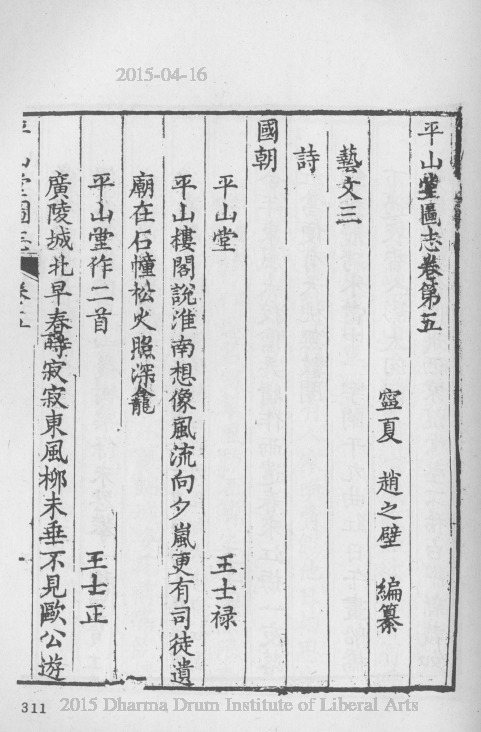 2015-04-16
平山堂圖志卷第五
寧夏 趙之壁 編纂
藝文三
詩
國朝
平山堂 王士禄
平山樓閣說淮南想像風流向夕嵐更有司徒遺
廟在石幢松火照深龕
平山堂作二首 王士正
廣陵城北早春時寂寂東風柳未垂不見歐公遊
平山堂圖志 卷五
311
2015 Dharma Drum Institute of Liberal Arts